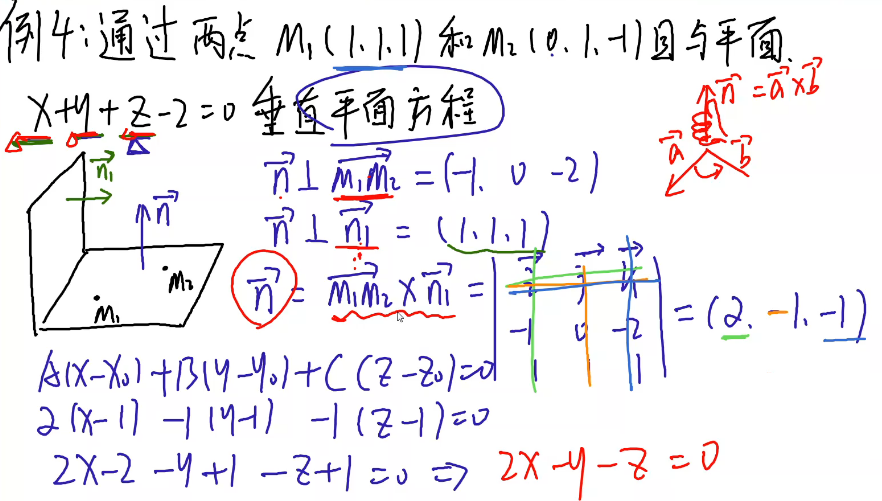 例4:通过两点 M₁(1.1.1)和M₂(0.1.-1)且与平面.
x+y+z-2=0 垂直平面方程
n⃗=a⃗×b⃗
a⃗ b⃗
n⃗₁
n⃗
M₂
M₁
n⃗⊥M₁M₂⃗=(-1. 0 -2)
n⃗⊥n⃗₁=(1.1.1)
n⃗=M₁M₂⃗×n⃗₁= | -1 0 -2 1 | =(2.-1.-1)
A(x-x₀)+B(y-y₀)+C(z-z₀)=0
2(x-1) -1(y-1) -1(z-1)=0
2x-2-y+1-z+1=0⇒ 2x-y-z=0